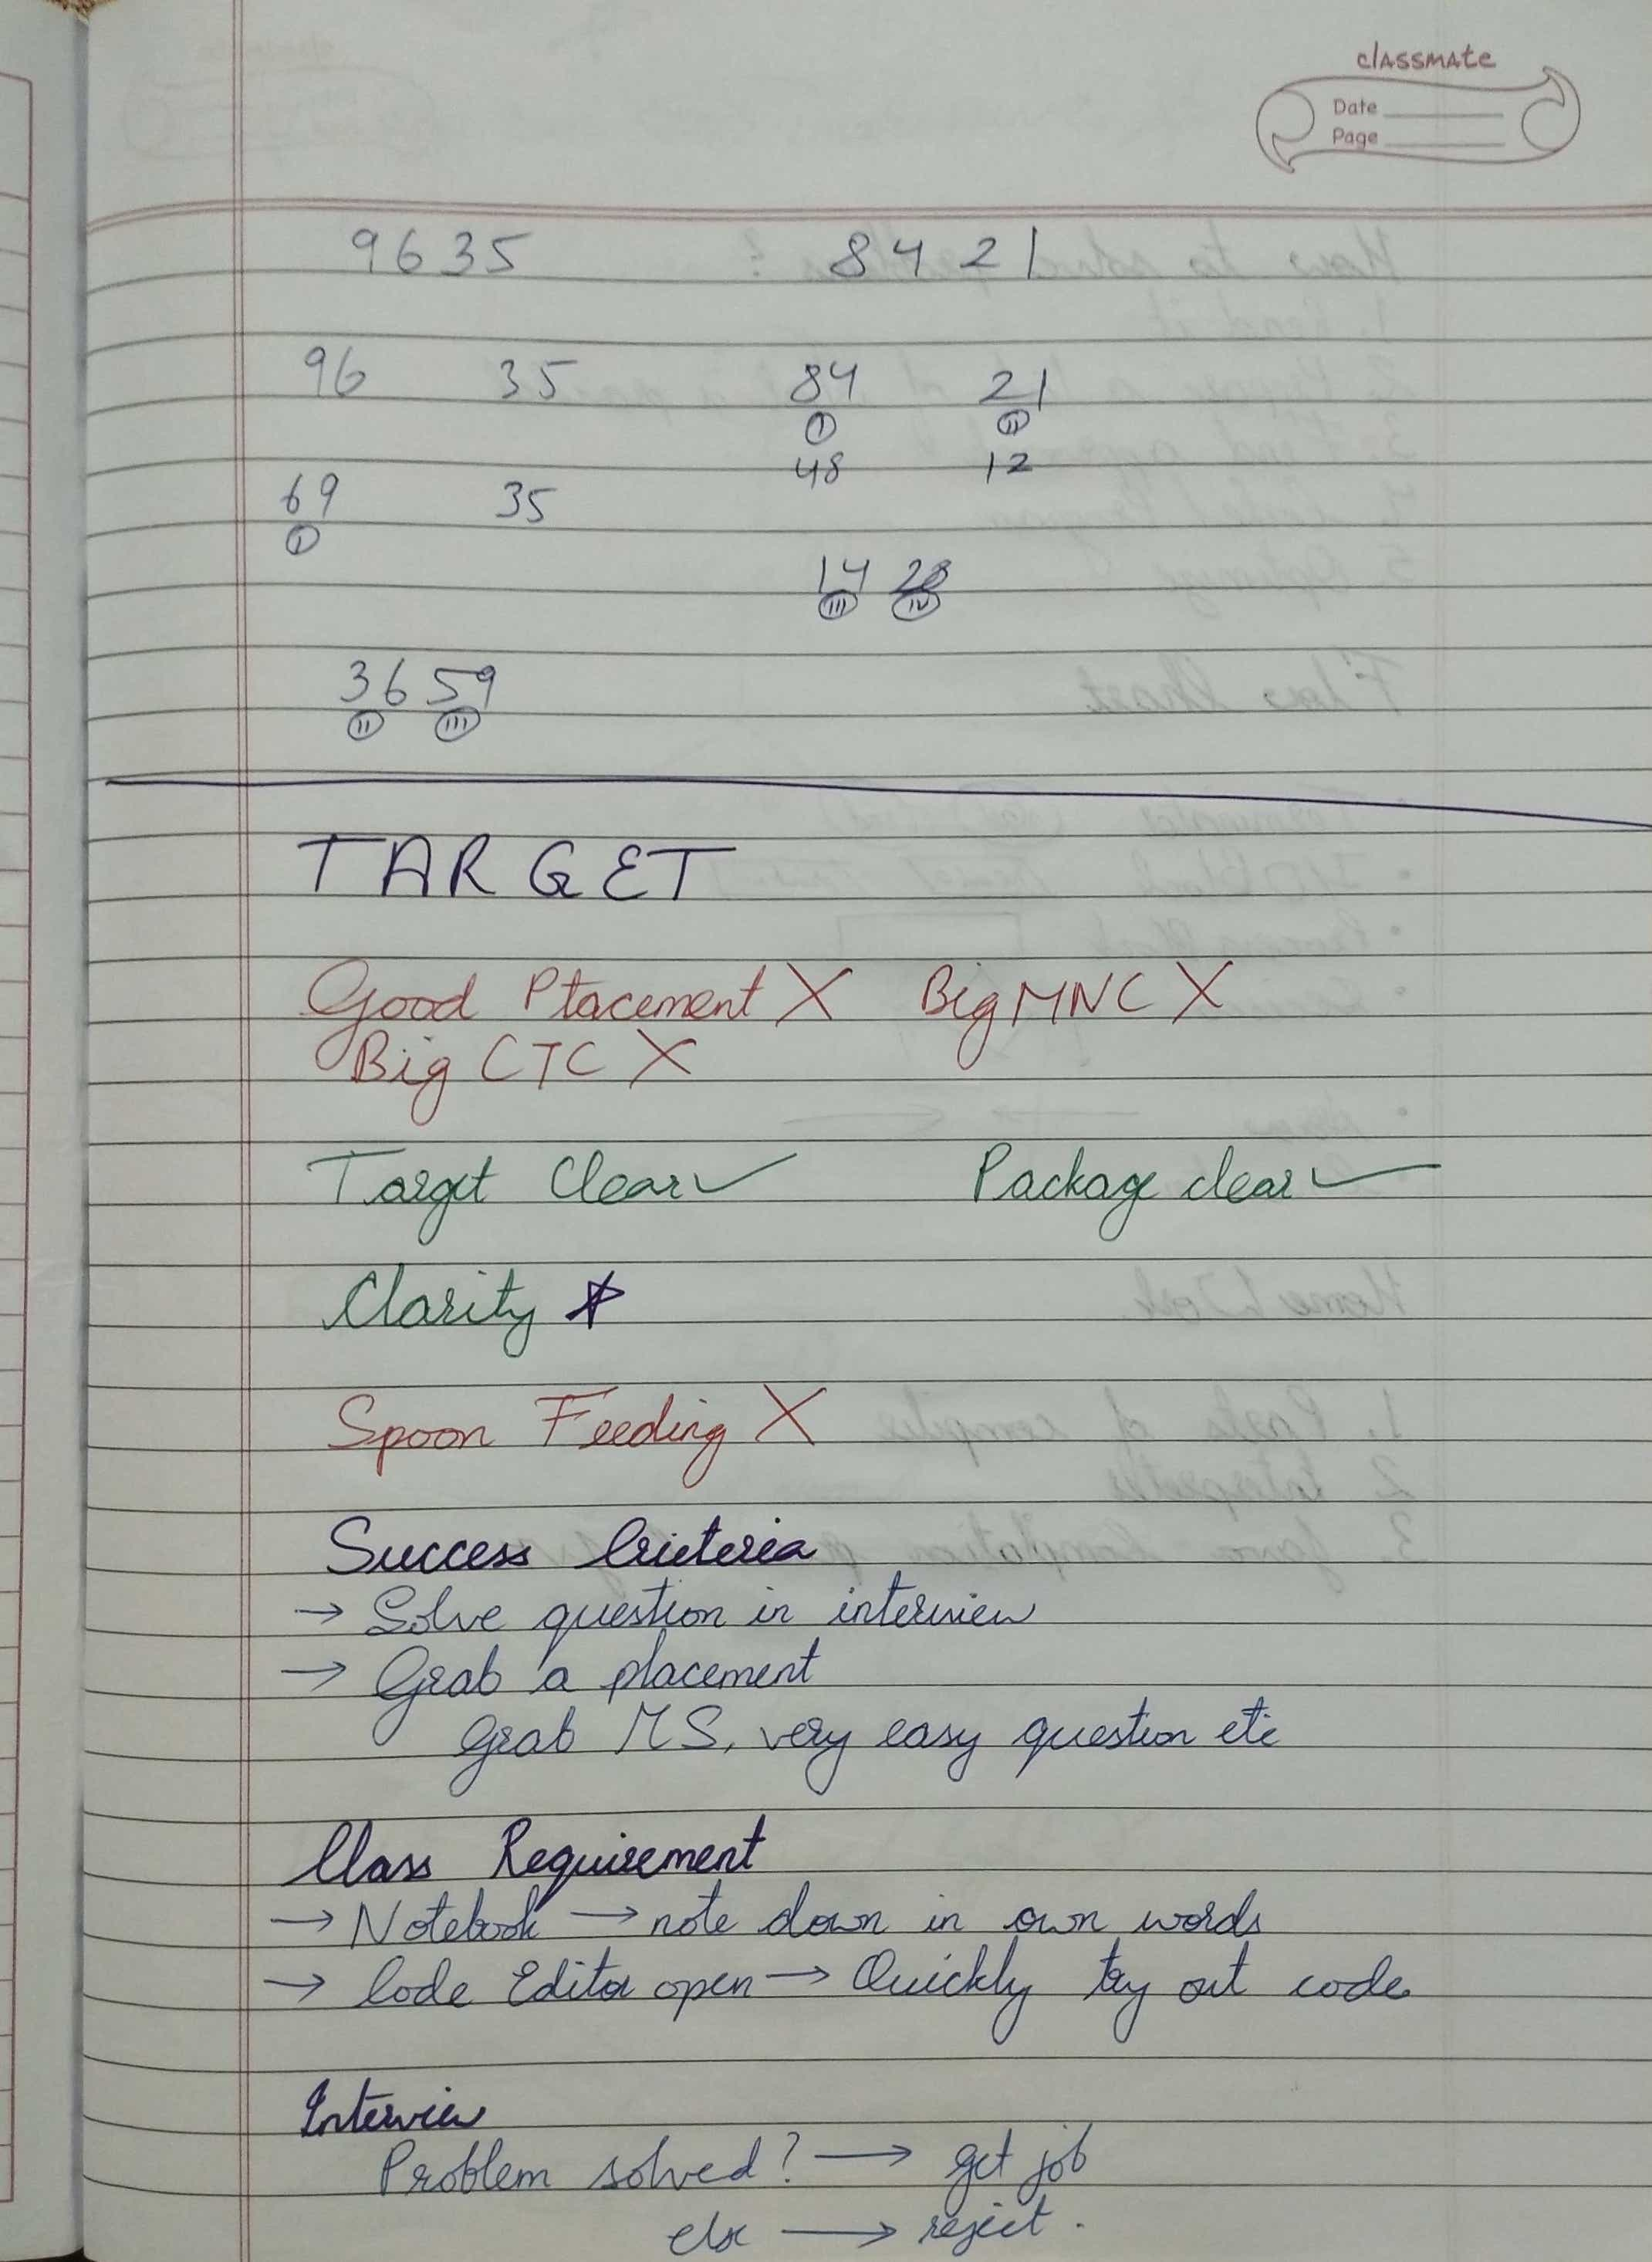 classmate
Date
Page
9635 8421
96 35 84 21
I II
48 12
69 35
I
14 28
III IV
36 59
II III
TARGET
Good Placement X Big MNC X
Big CTC X
Target Clear ✓ Package clear ✓
Clarity ☆
Spoon Feeding X
Success Criteria
→ Solve question in interview
→ Grab a placement
Grab MS, very easy question etc
Class Requirement
→ Notebook → note down in own words
→ Code Editor open → Quickly try out code
Interview
Problem solved? → get job
else → reject.